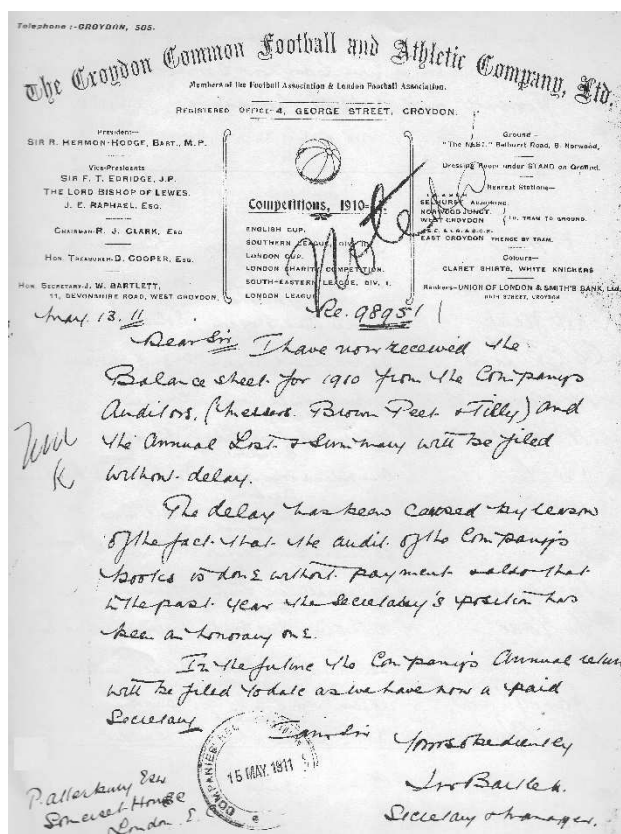 Telephone :-CROYDON, 505.
The Croydon Common Football and Athletic Company, Ltd.
Members of the Football Association & London Football Association.
REGISTERED OFFICE-4, GEORGE STREET, CROYDON.
President-
SIR R. HERMON-HODGE, BART., M.P.
Vice-Presidents
SIR F. T. EDRIDGE, J.P.
THE LORD BISHOP OF LEWES.
J. E. RAPHAEL, ESQ.
CHAIRMAN-R. J. CLARK, ESQ.
HON. TREASURER-D. COOPER, ESQ.
HON. SECRETARY-J. W. BARTLETT,
11, DEVONSHIRE ROAD, WEST CROYDON.
Competitions, 1910-
ENGLISH CUP.
SOUTHERN LEAGUE, DIV. II.
LONDON CUP.
LONDON CHARITY COMPETITION.
SOUTH-EASTERN LEAGUE, DIV. I.
LONDON LEAGUE
Noted
Ground-
"The NEST," Selhurst Road, S. Norwood.
Dressing Room under STAND on Ground.
Nearest Stations-
SELHURST ADJOINING.
NORWOOD JUNCT.
WEST CROYDON
TRAM TO GROUND.
EAST CROYDON THENCE BY TRAM.
Colours-
CLARET SHIRTS, WHITE KNICKERS
Bankers-UNION OF LONDON & SMITH'S BANK, Ltd.
STREET, CROYDON
May. 13. 11
Re. 98951
Dear Sir I have now received the
Balance sheet for 1910 from the Companys
Auditors, (Messrs. Brown Peet & Tilly) and
the Annual List & Summary will be filed
without delay.
The delay has been caused by reason
of the fact that the audit of the Company's
books is done without payment & also that
in the past year the Secretary's position has
been an honorary one.
In the future the Company's Annual return
will be filed to date as we have now a paid
Secretary
I am Sir
Yours obediently
Jno Bartlett.
Secretary & Manager.
COMPANIES
15 MAY. 1911
P. Atterbury Esq
Somerset House
London. E.C